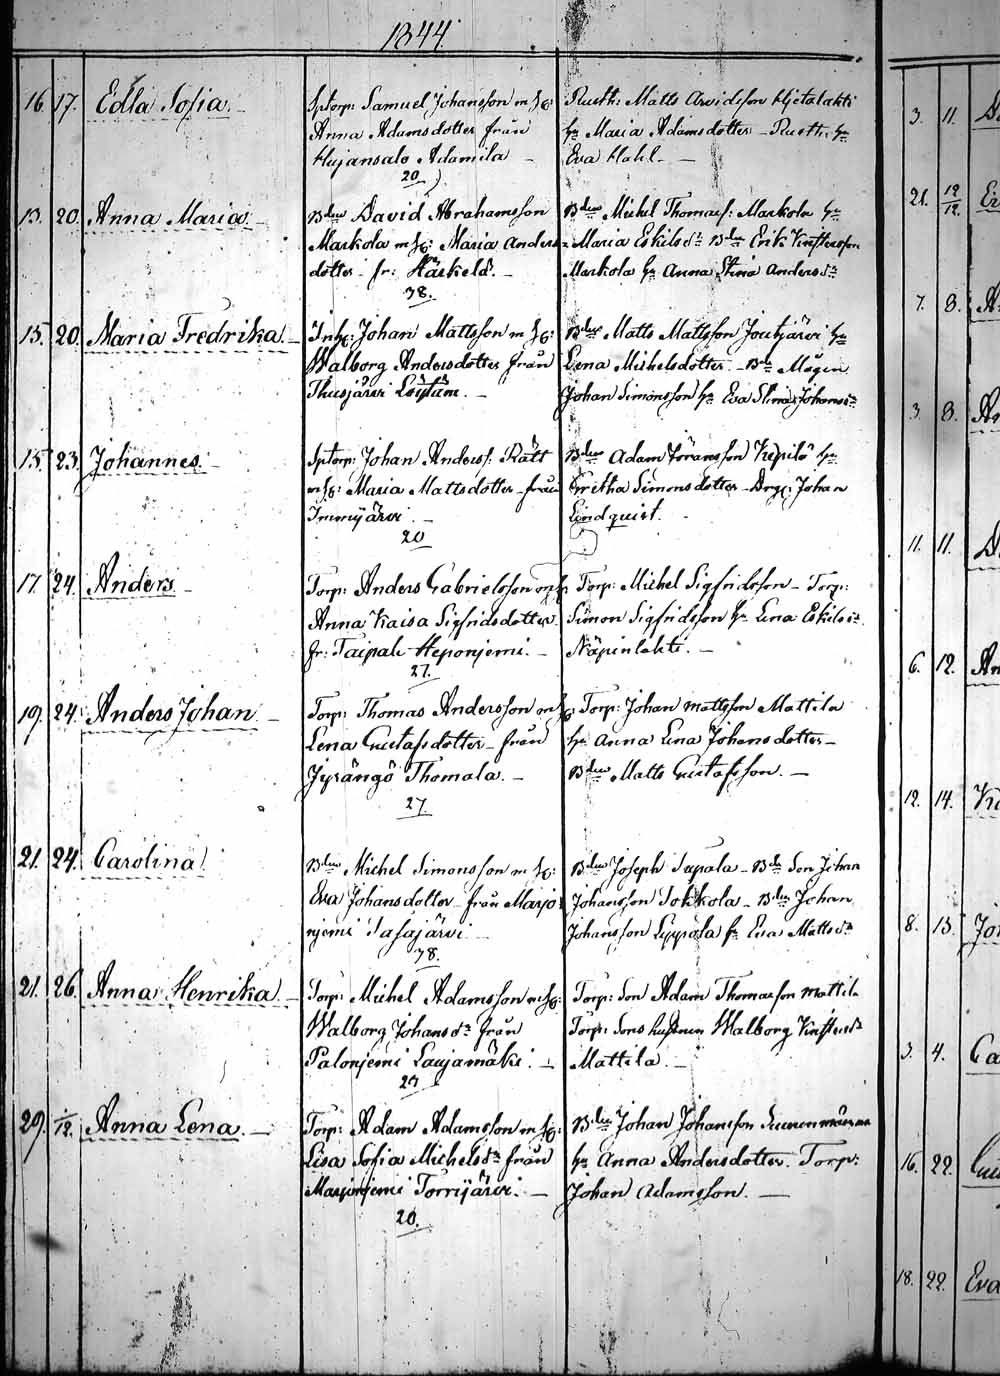 1844.
16 17. Edla Sofia.
Sptorp: Samuel Johansson m h:
Anna Adamsdotter från
Hujansalo Adamila
20
Rusth: Matts Arvidsson Hietalahti
Maria Adamsdotter Rusth:
Eva Hahl.
13. 20. Anna Maria
Bden David Abrahamsson
Markola m h: Maria Anders-
dotter fr: Härkelä.
38.
Bden Michel Thomasf: Markola
Maria Eskilsdr Bden Erik
Markola Anna Stina Andersdr
15. 20. Maria Fredrika
Inh: Johan Mattsson m h:
Walborg Andersdotter från
Thusjärvi
Bden Matts Mattsson Joutjärvi
Lena Michelsdotter Bde Mågen
Johan Simonsson Eva Stina Johansdr
15. 23. Johannes.
Sptorp: Johan Andersf: Rätt
m h: Maria Mattsdotter från
Immijärvi
20
Bden Adam Göransson Kepilö
Gretha Simonsdotter Drg: Johan
Lindquist.
17 24. Anders
Torp: Anders Gabrielsson
Anna Kaisa Sigfridsdotter
fr: Taipale Heponjemi.
27.
Torp: Michel Sigfridsson Torp:
Simon Sigfridsson Lena Eskilsdr
Näpinlahti.
19. 24. Anders Johan
Torp: Thomas Andersson m h:
Lena Gustafsdotter från
Jyrängö Thomala.
27.
Torp: Johan Mattsson Mattila
Anna Lena Johansdotter
Bden Matts Gustafsson.
21. 24. Carolina
Bden Michel Simonsson m h:
Eva Johansdotter från Marjo
njemi Sasajärvi
38.
Bden Joseph Supala Bde Son Johan
Johansson Sokkola Bden Johan
Johansson Lyppola Eva Mattsdr
21. 26. Anna Henrika
Torp: Michel Adamsson m h:
Walborg Johansdr från
Palonjemi Laujamäki.
Torp: Son Adam Thomasson Mattila
Torp: Sons hustrun Walborg
Mattila.
29. 1/12. Anna Lena.
Torp: Adam Adamsson m h:
Lisa Sofia Michelsdr från
Marjonjemi Torrijärvi.
20.
Bden Johan Johansson
Anna Andersdotter. Torp:
Johan Adamsson.
3. 11.
21. 12/12.
7. 8.
3. 8.
11. 11.
6. 12. An
12. 14.
8. 13. Jo
3. 4. Ca
16. 22.
18. 22. Eva